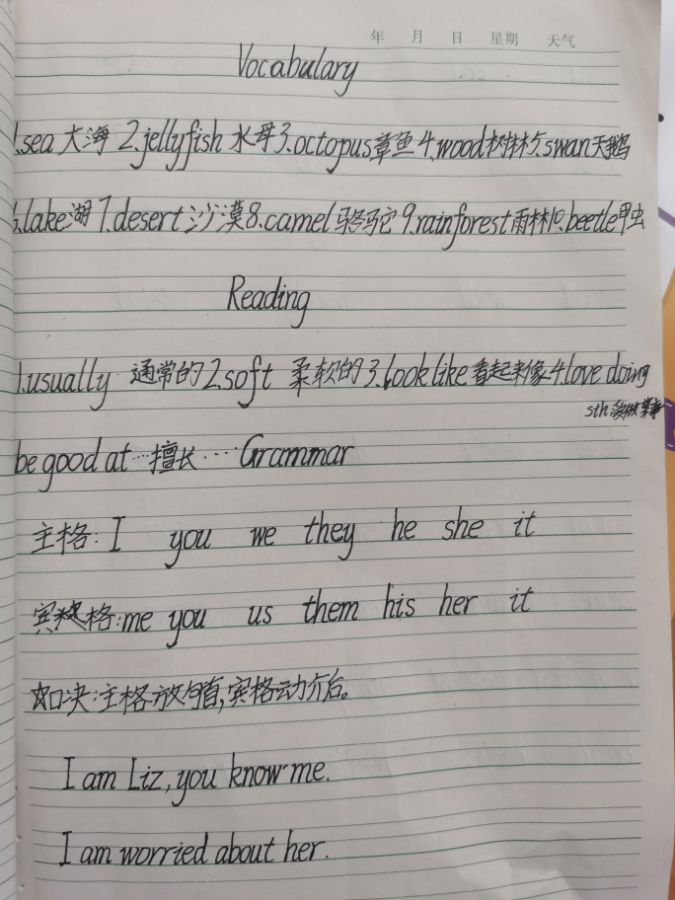 年 月 日 星期 天气
Vocabulary
1.sea 大海 2.jellyfish 水母 3.octopus 章鱼 4.wood 树林 5.swan 天鹅
6.lake 湖 7.desert 沙漠 8.camel 骆驼 9.rainforest 雨林 10.beetle 甲虫
Reading
1.usually 通常的 2.soft 柔软的 3.look like 看起来像 4.love doing
sth.
be good at …擅长… Grammar
主格: I you we they he she it
宾格: me you us them his her it
☆口决:主格放句首,宾格动介后。
I am Liz, you know me.
I am worried about her.